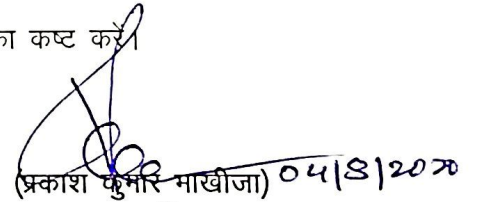 का कष्ट करें।
(प्रकाश कुमार माखीजा) 04/8/2020